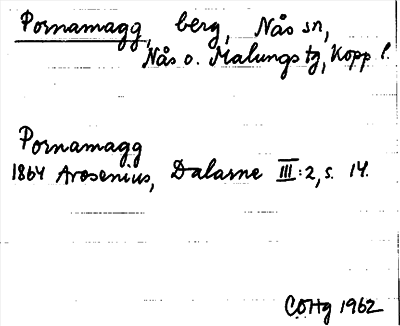 Pornamagg, berg, Nås sn,
Nås o. Malungs tg, Kopp l.
Pornamagg
1864 Arosenius, Dalarne III:2, s. 14.
COHg 1962